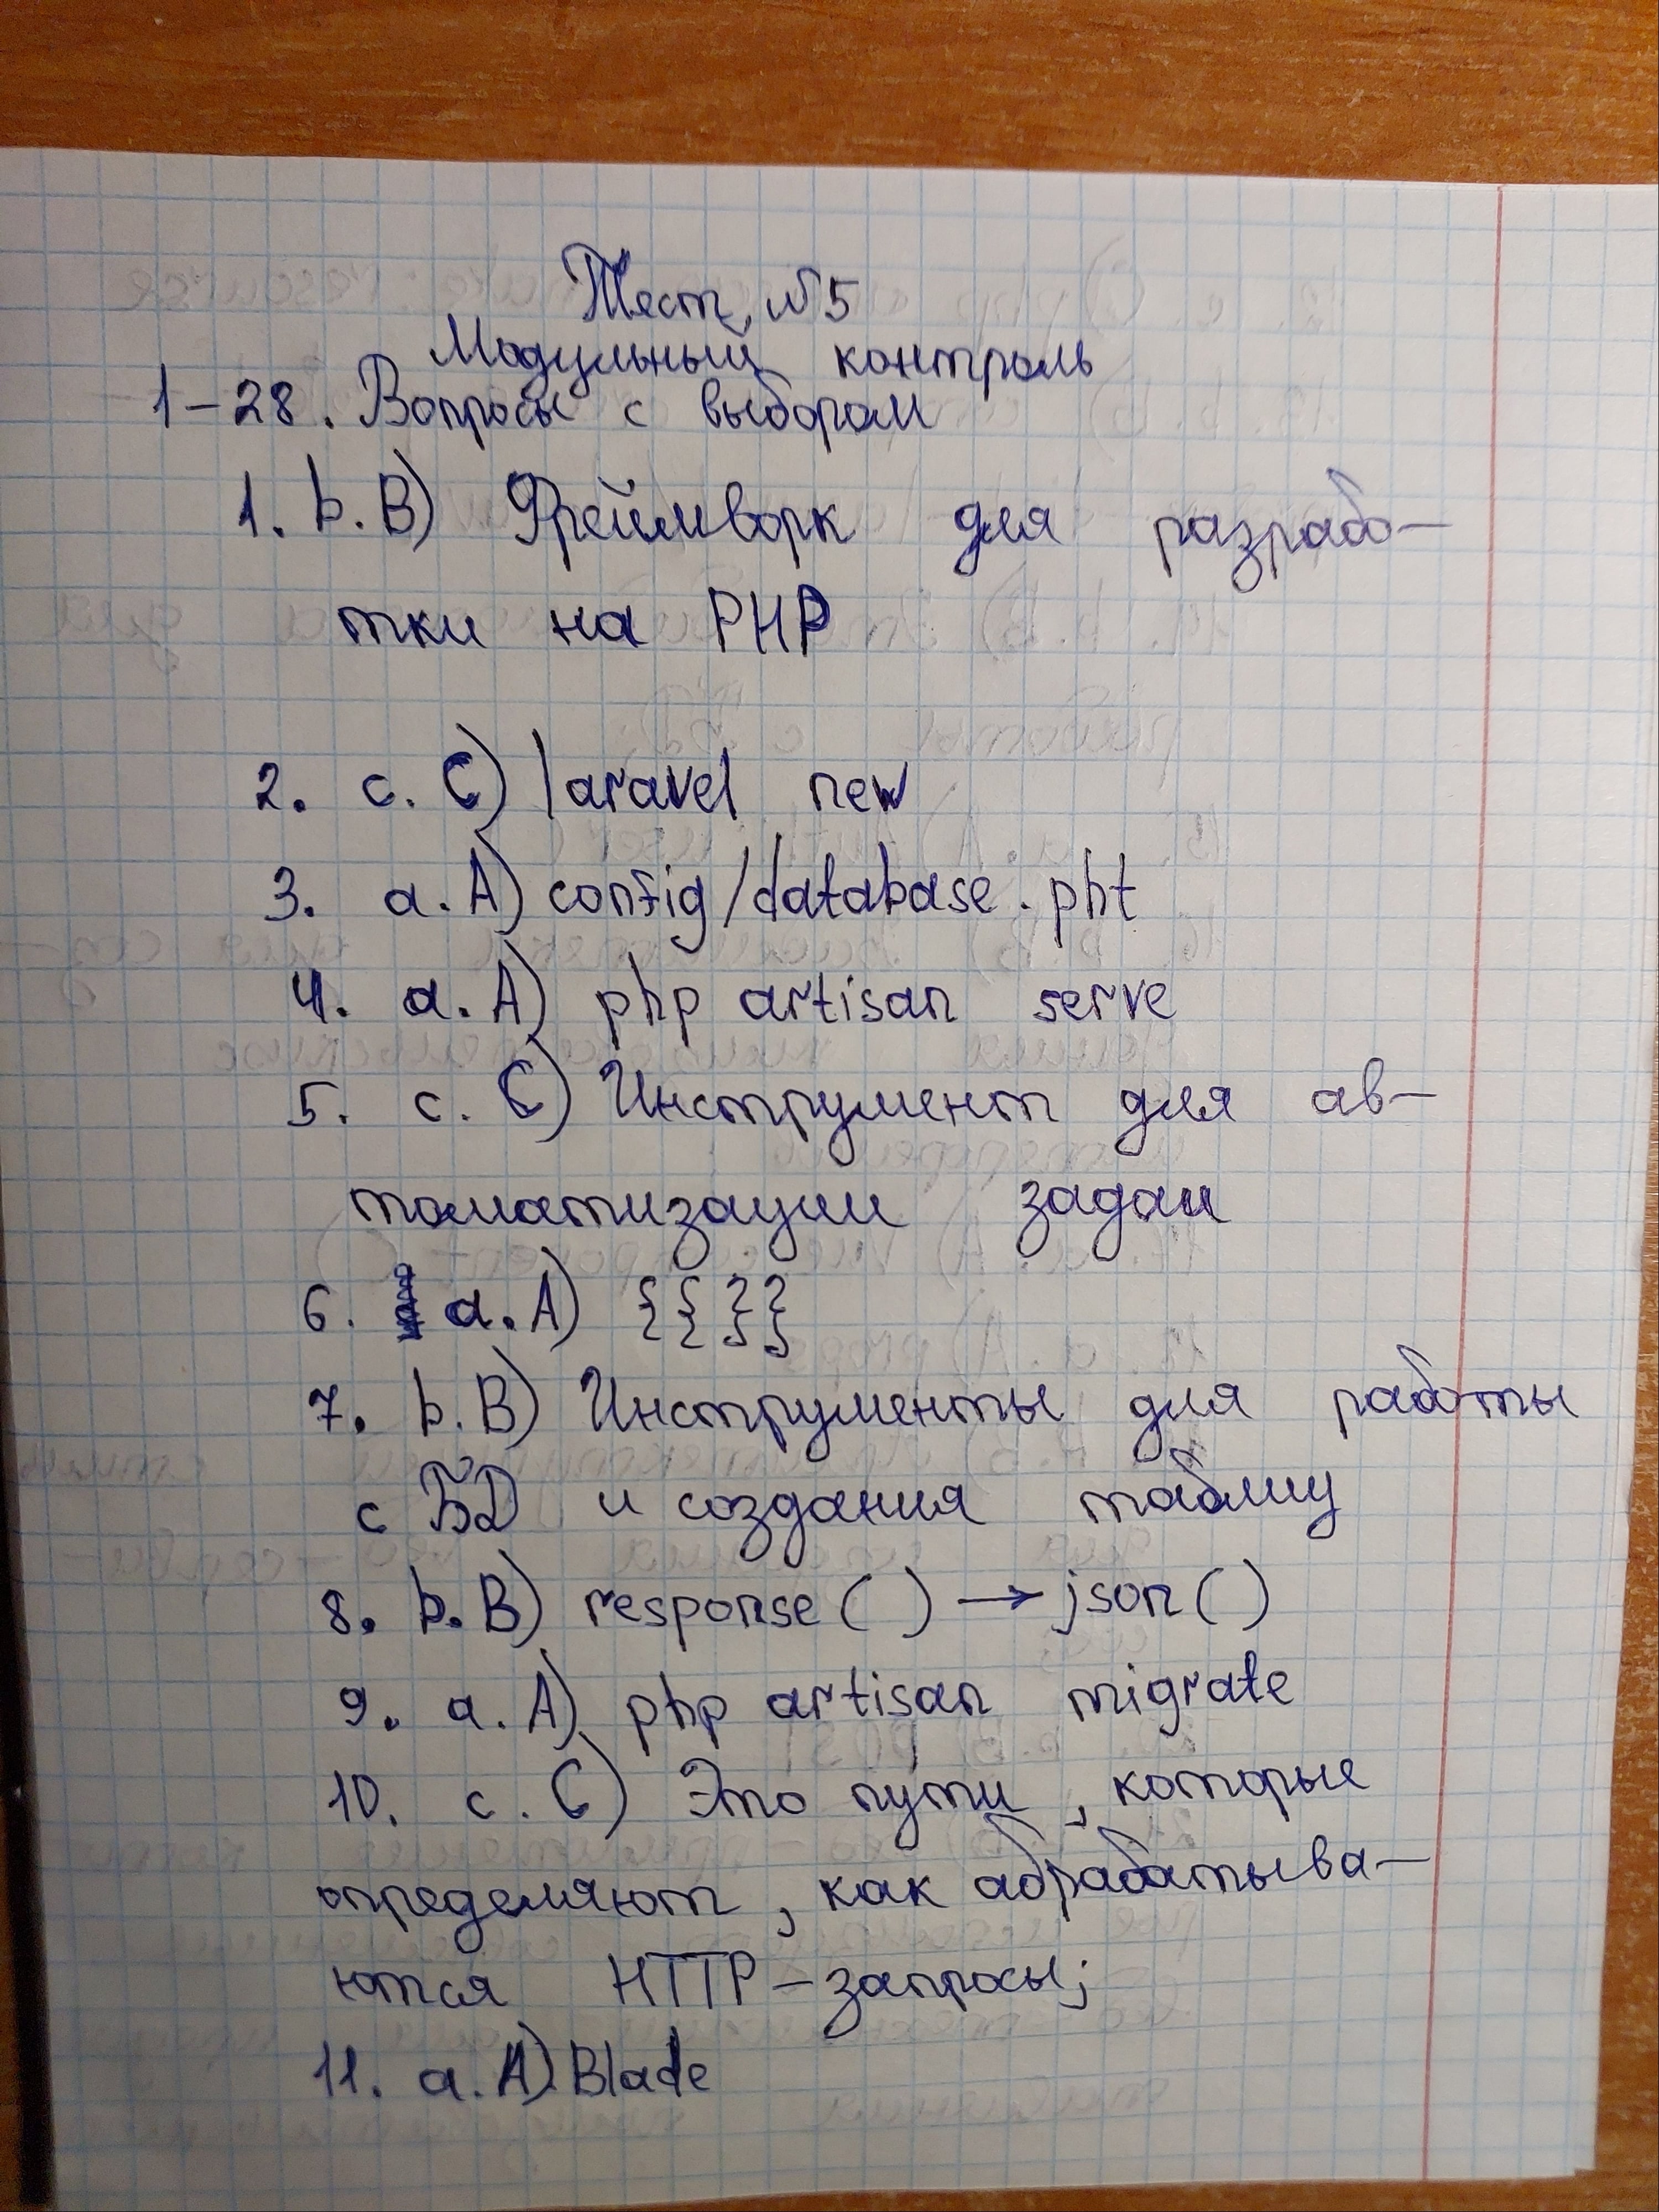 Тест №5
Модульный контроль
1-28. Вопросы с выбором
1. b. B) Фреймворк для разрабо-
тки на PHP
2. c. C) laravel new
3. a. A) config/database.pht
4. a. A) php artisan serve
5. c. C) Инструмент для ав-
томатизации задач
6. a. A) {{ }}
7. b. B) Инструменты для работы
с БД и создания таблиц
8. b. B) response( ) → json( )
9. a. A) php artisan migrate
10. c. C) Это пути, которые
определяют, как абрабатыва-
ются HTTP-запросы;
11. a. A) Blade